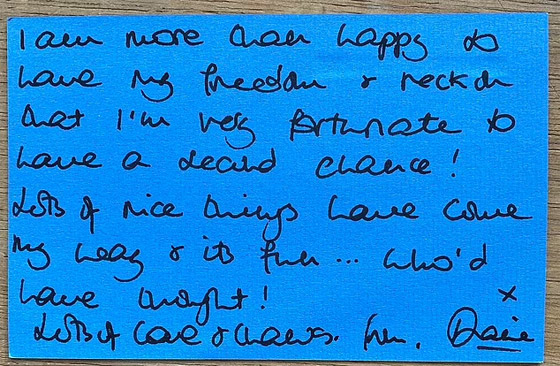 I am more than happy to
have my freedom & reckon
that I'm very fortunate to
have a second chance!
Lots of nice things have come
my way & its fun ... who'd
have thought!
x
Lots of love & thanks.